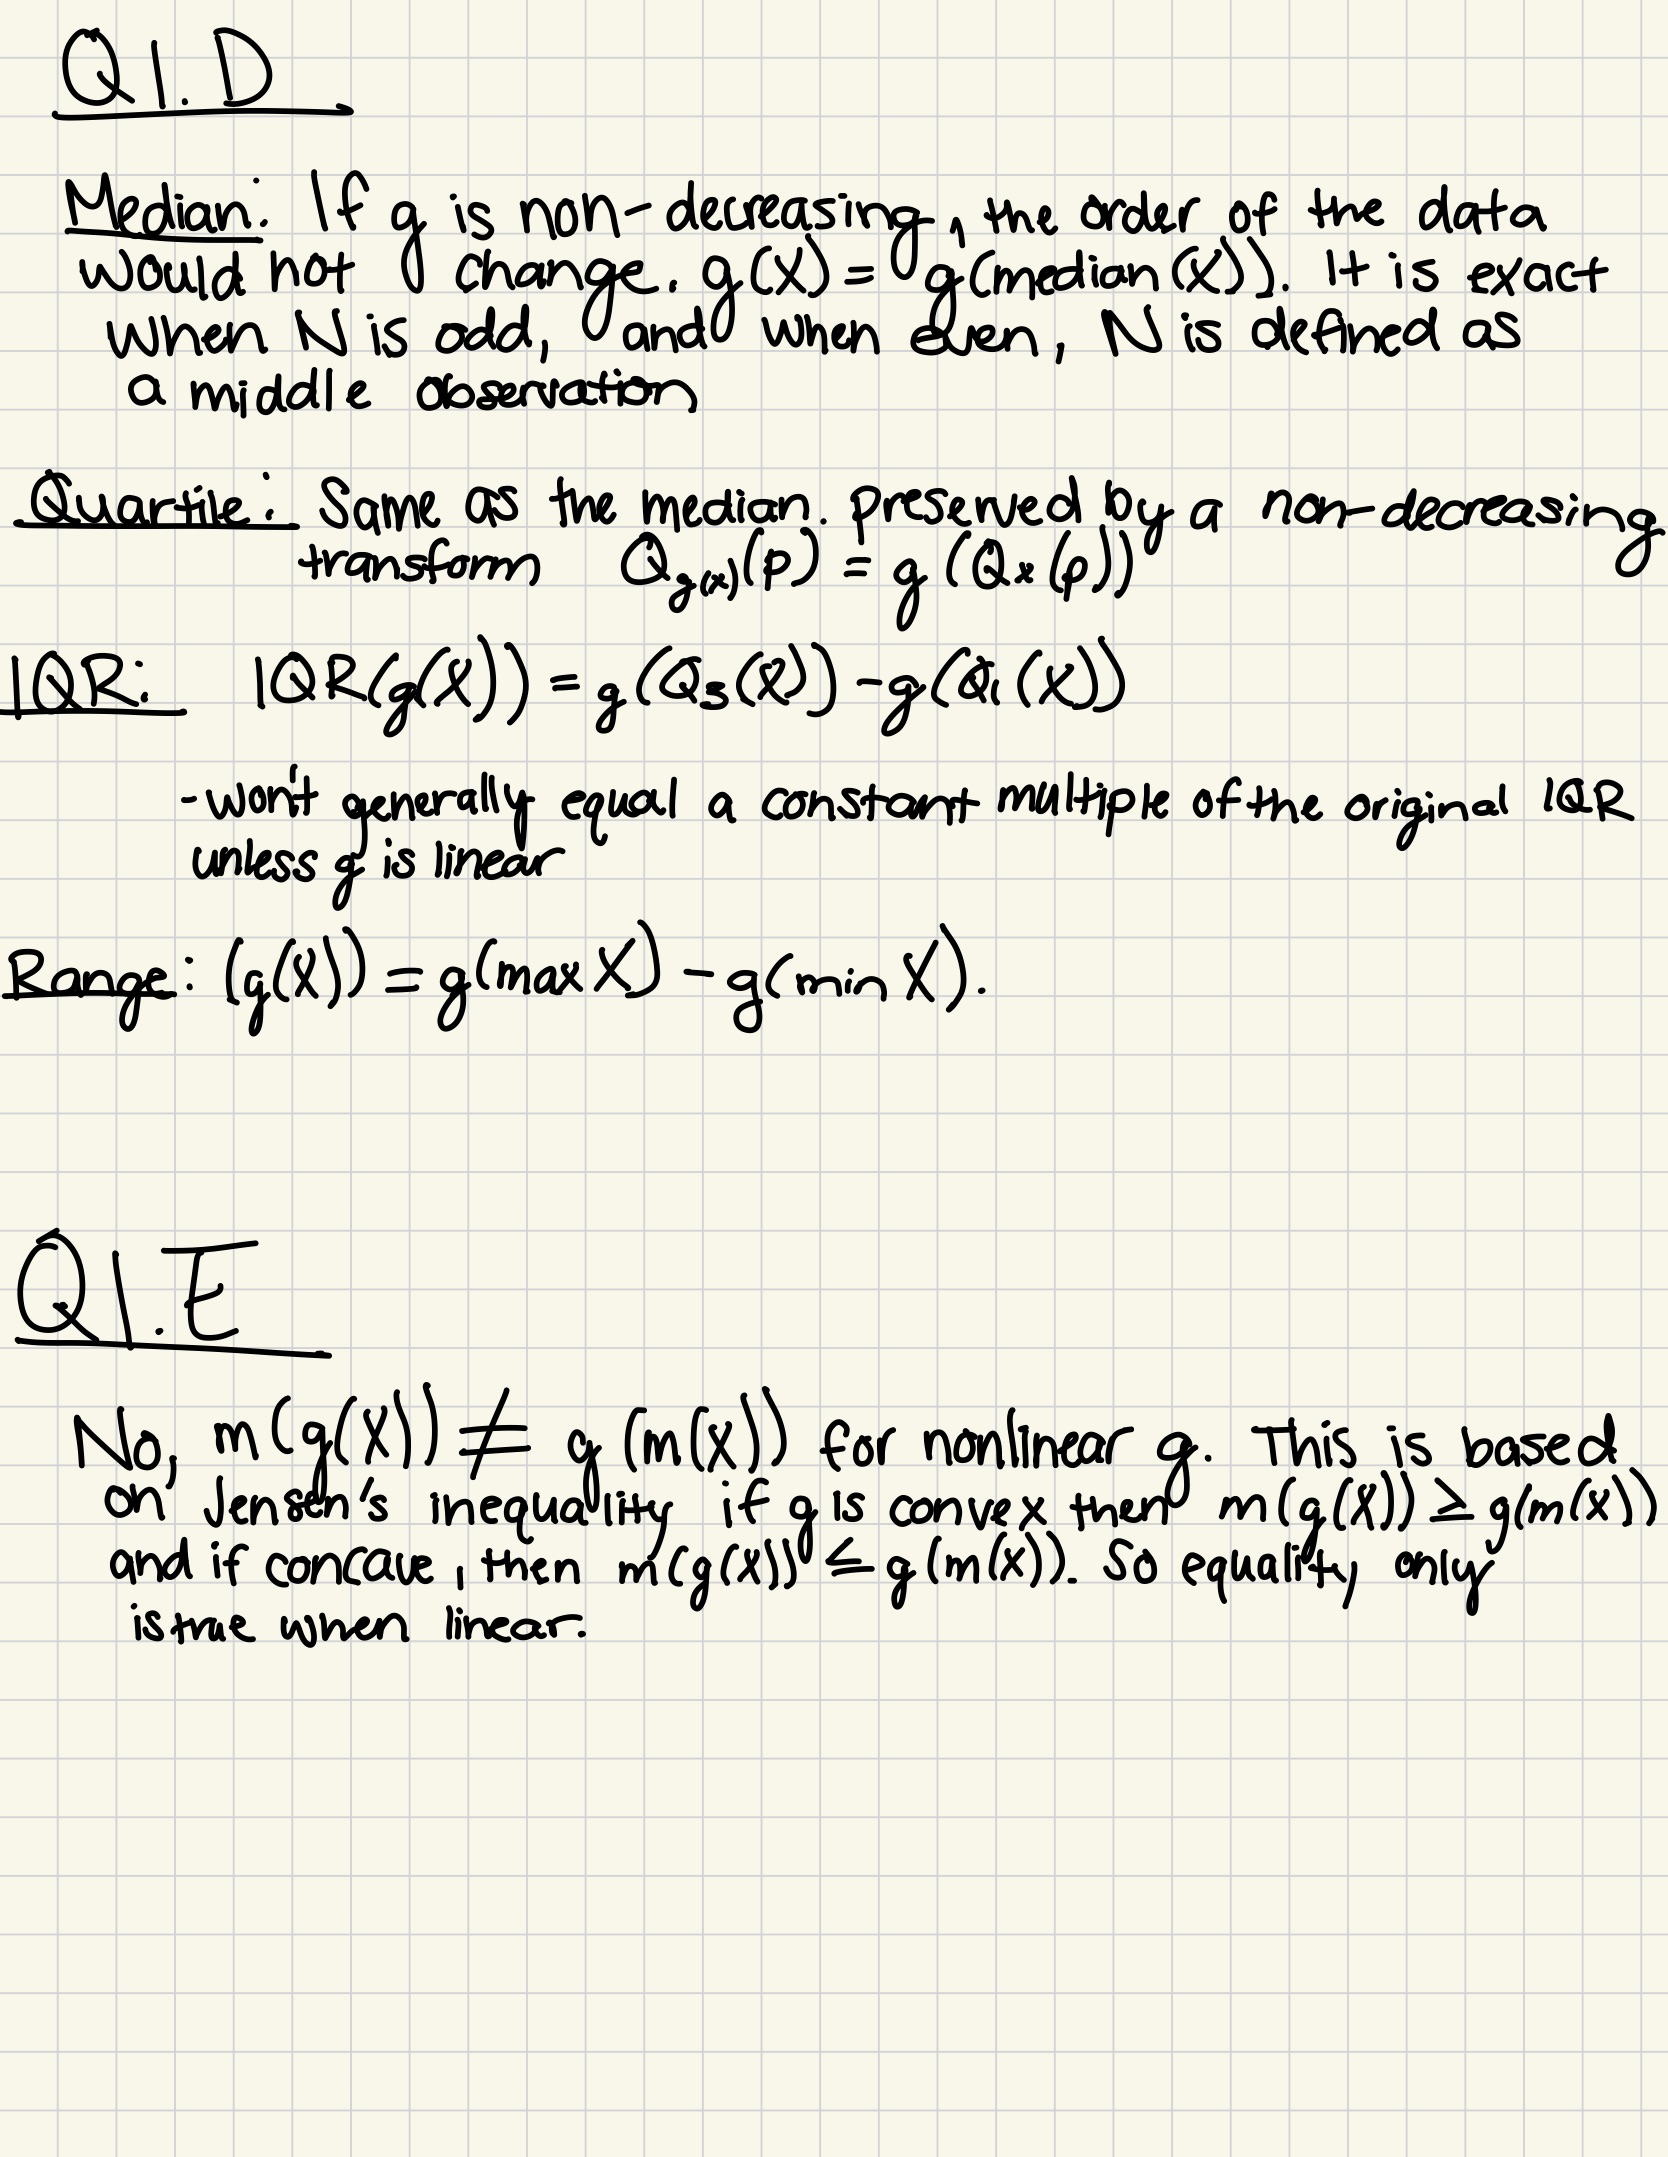 Q1.D
Median: If g is non-decreasing, the order of the data
would not change. g(X) = g(median(X)). It is exact
when N is odd, and when even, N is defined as
a middle observation
Quartile: Same as the median. Preserved by a non-decreasing
transform Q_{g(x)}(p) = g(Q_x(p))
IQR: IQR(g(X)) = g(Q_3(X)) - g(Q_1(X))
- won't generally equal a constant multiple of the original IQR
unless g is linear
Range: (g(X)) = g(max X) - g(min X).
Q1.E
No, m(g(X)) ≠ g(m(X)) for nonlinear g. This is based
on Jensen's inequality if g is convex then m(g(X)) ≥ g(m(X))
and if concave, then m(g(X)) ≤ g(m(X)). So equality only
is true when linear.